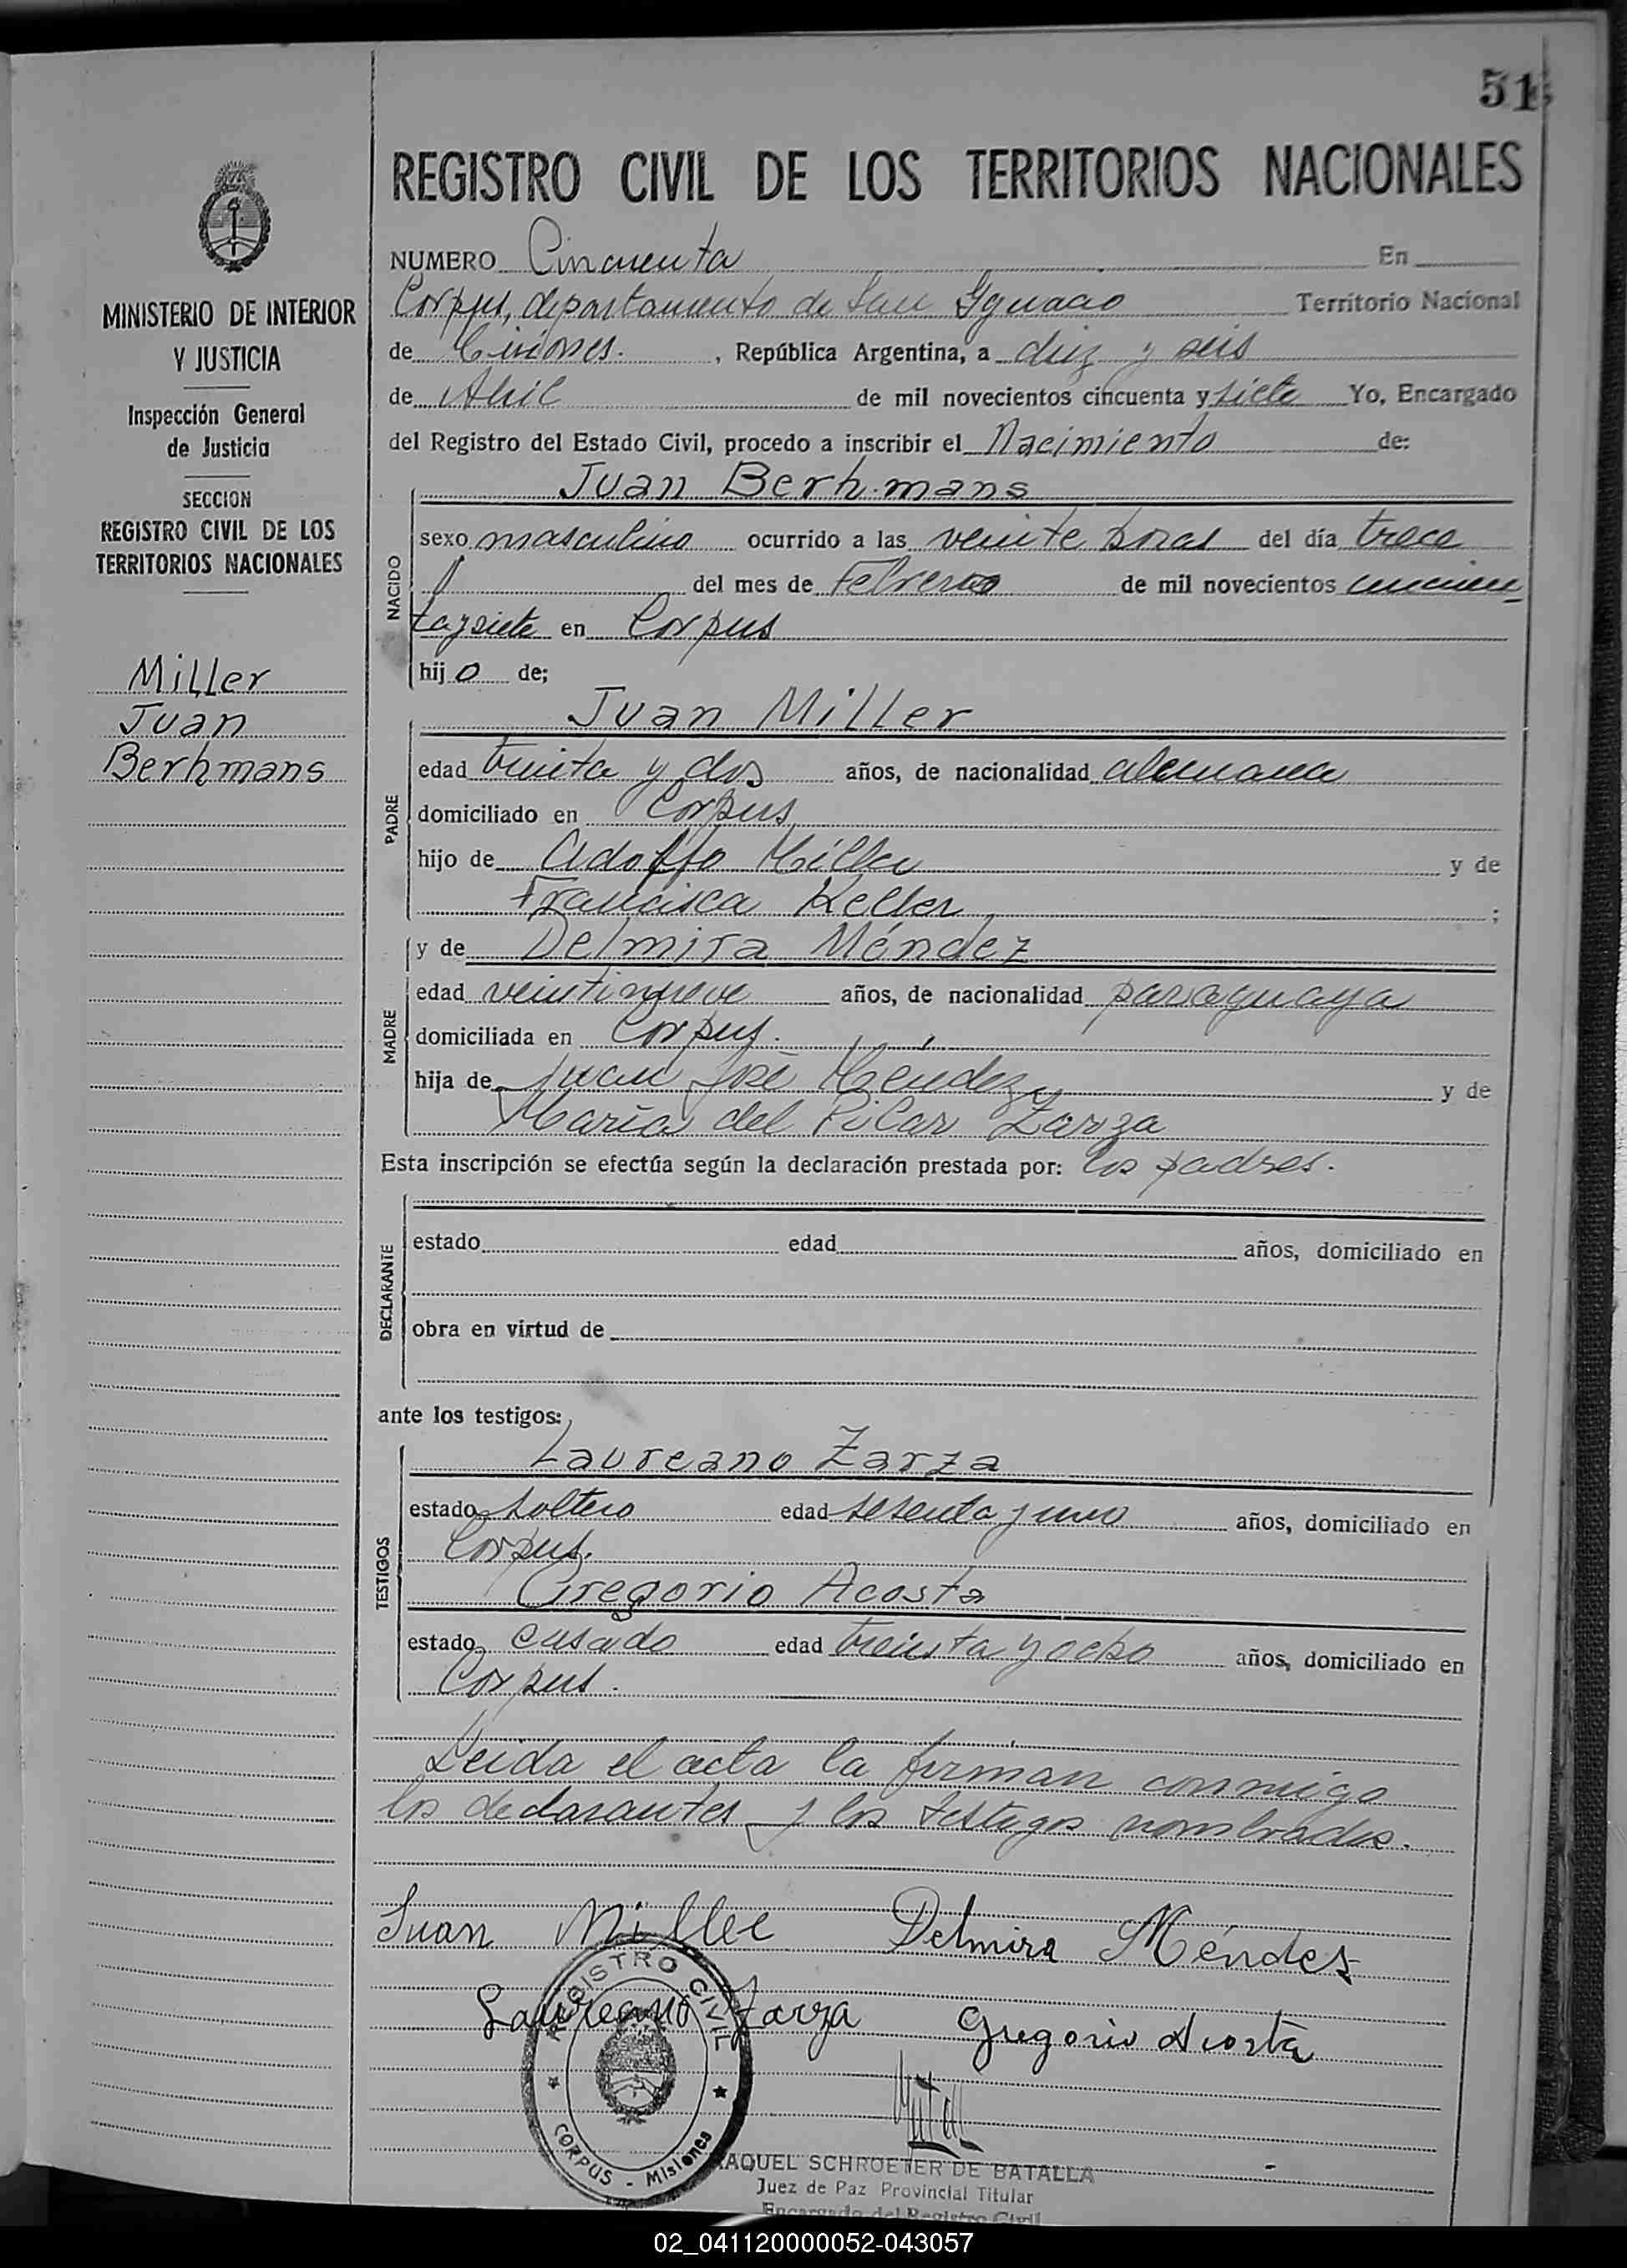 51
REGISTRO CIVIL DE LOS TERRITORIOS NACIONALES
MINISTERIO DE INTERIOR
Y JUSTICIA
Inspección General
de Justicia
SECCION
REGISTRO CIVIL DE LOS
TERRITORIOS NACIONALES
Miller
Juan
Berhmans
NUMERO Cincuenta En
Corpus, departamento de San Ygnacio Territorio Nacional
de Misiones. , República Argentina, a diez y seis
de Abril de mil novecientos cincuenta y siete Yo, Encargado
del Registro del Estado Civil, procedo a inscribir el Nacimiento de:
NACIDO
Juan Berhmans
sexo masculino ocurrido a las veinte horas del día trece
del mes de Febrero de mil novecientos cincuen
taysiete en Corpus
hijo de;
PADRE
Juan Miller
edad treinta y dos años, de nacionalidad alemana
domiciliado en Corpus
hijo de Adolfo Miller y de
Francisca Keller ;
MADRE
y de Delmira Méndez
edad veintinueve años, de nacionalidad paraguaya
domiciliada en Corpus.
hija de Juan José Méndez y de
María del Pilar Zarza
Esta inscripción se efectúa según la declaración prestada por: los padres.
DECLARANTE
estado edad años, domiciliado en
obra en virtud de
ante los testigos:
TESTIGOS
Laureano Zarza
estado soltero edad sesenta y uno años, domiciliado en
Corpus.
Gregorio Acosta
estado casado edad treinta y ocho años, domiciliado en
Corpus.
Leida el acta la firman conmigo
los declarantes y los testigos nombrados.
Juan Miller Delmira Méndez
Laureano Zarza Gregorio Acosta
REGISTRO CIVIL
CORPUS - Misiones
RAQUEL SCHROETER DE BATALLA
Juez de Paz Provincial Titular
Encargado del Registro Civil
02_041120000052-043057